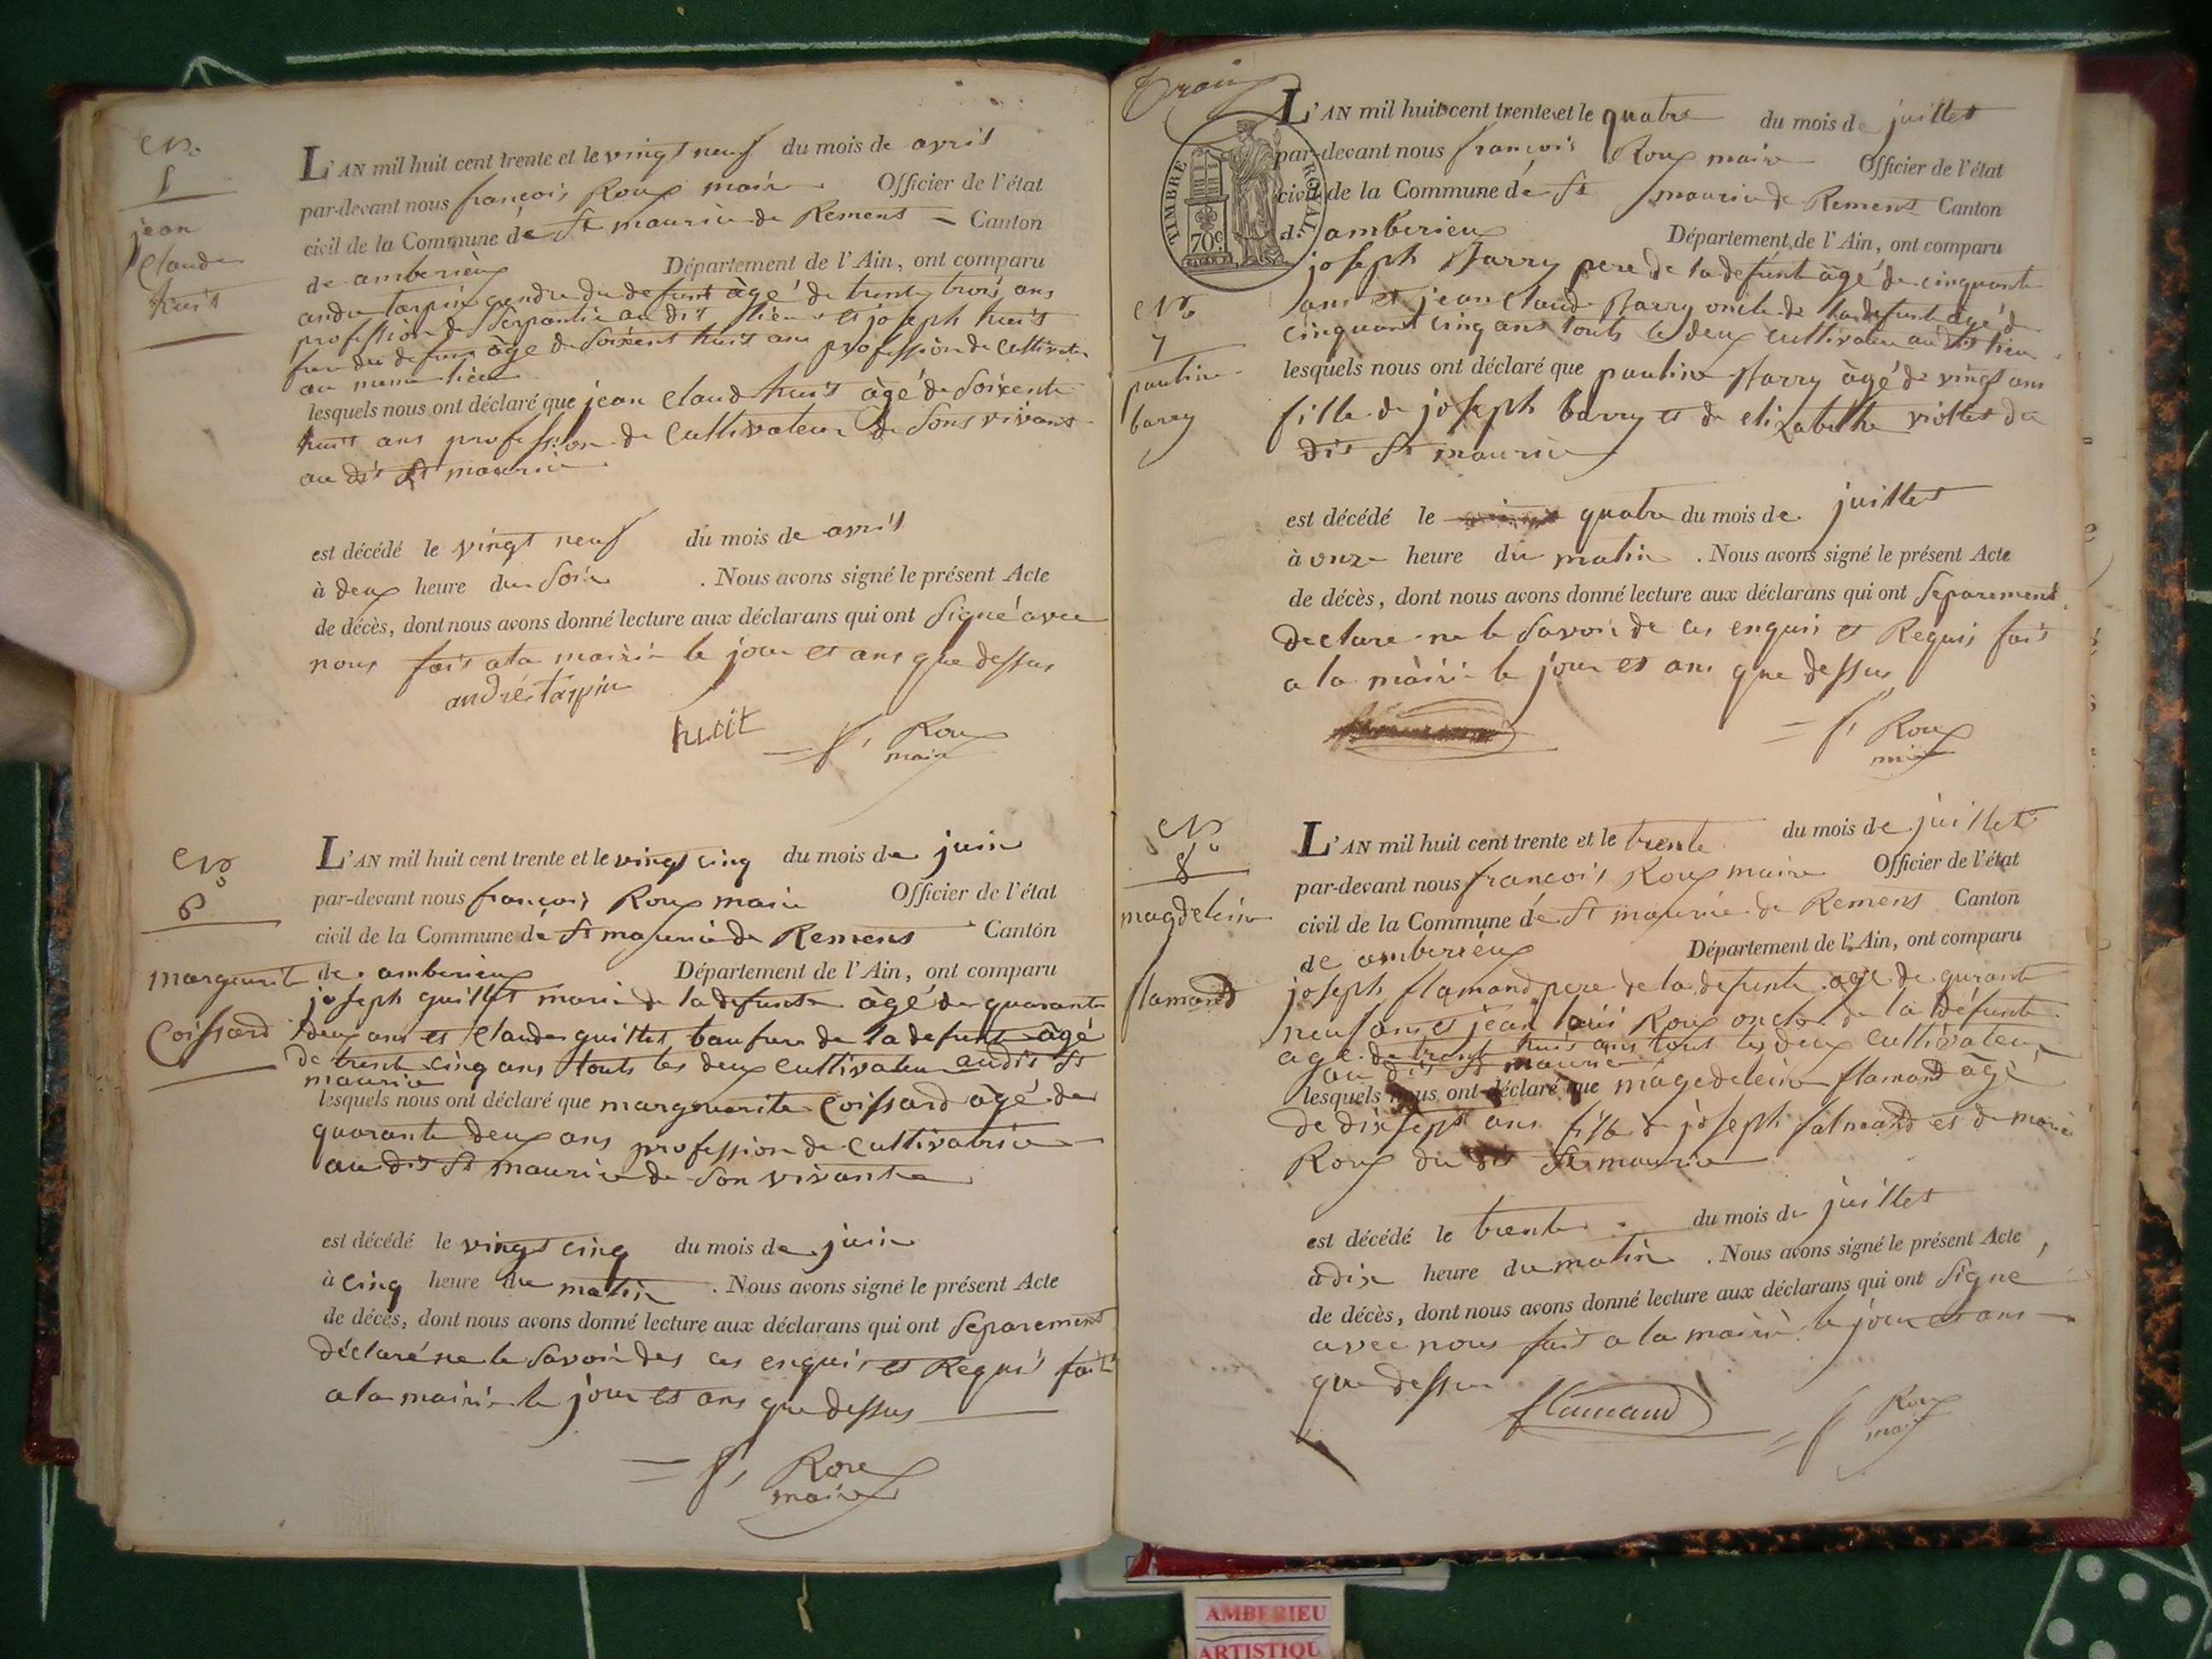 No
5
jean
Claude
huit
L'AN mil huit cent trente et le vingt neuf du mois de avril
par-devant nous françois Roux maire Officier de l'état
civil de la Commune de St maurice de Remens Canton
de amberieux Département de l'Ain, ont comparu
andré tarpin gendre du defunt âgé de trente trois ans
profession de Serpantié au dit lieu et joseph huit
frere du defunt âgé de Soixent huit ans profession de Cultivate
au meme lieu
lesquels nous ont déclaré que jean Claud huit âgé de Soixente
huit ans profession de Cultivateur de Sons vivant
au dit St maurice
est décédé le vingt neuf du mois de avril
à deux heure du Soir . Nous avons signé le présent Acte
de décès, dont nous avons donné lecture aux déclarans qui ont Signé avec
nous fait a la mairie le jour et ans que dessus
andré tarpin
huit
f. Roux
maire
No
6
marguerite
Coissard
L'AN mil huit cent trente et le vingt cinq du mois de juin
par-devant nous françois Roux maire Officier de l'état
civil de la Commune de St maurice de Remens Canton
de amberieux Département de l'Ain, ont comparu
joseph guillet mari de la defunte âgé de quarante
deux ans et Claude guillet baufrere de la defunte âgé
de trente cinq ans touts les deux Cultivateur audit St
maurice
lesquels nous ont déclaré que marguerite Coissard âgé de
quarante deux ans profession de Cultivatrice
au dit St maurice de Son vivante
est décédé le vingt cinq du mois de juin
à Cinq heure du matin . Nous avons signé le présent Acte
de décès, dont nous avons donné lecture aux déclarans qui ont Separement
déclaré ne le Savoir des ces enquis et Requis fait
a la mairie le jour et ans que dessus
f. Roux
maire
TIMBRE ROYAL
70c
No
7
pauline
barry
L'AN mil huit cent trente et le quatre du mois de juillet
par-devant nous françois Roux maire Officier de l'état
civil de la Commune de St maurice de Remens Canton
de amberieux Département de l'Ain, ont comparu
joseph barry pere de la defunt âgé de cinquante
ans et jean Claude barry oncle de la defunt âgé de
cinquant cinq ans touts le deux cultivateur au dit lieu
lesquels nous ont déclaré que pauline barry âgé de vingt ans
fille de joseph barry et de elizabethe viollet du
dit St maurice
est décédé le quatre du mois de juillet
à onze heure du matin . Nous avons signé le présent Acte
de décès, dont nous avons donné lecture aux déclarans qui ont Separement
declare ne le Savoir de ces enquis et Requis fait
a la mairie le jour et ans que dessus
f. Roux
maire
No
8
magdeleine
flamand
L'AN mil huit cent trente et le trente du mois de juillet
par-devant nous françois Roux maire Officier de l'état
civil de la Commune de St maurice de Remens Canton
de amberieux Département de l'Ain, ont comparu
joseph flamand pere de la defunte agé de qurante
neuf ans et jean loui Roux oncle de la défunte
agé de trente huit ans tout les deux cultivateur
au dit St maurice
lesquels nous ont déclaré que magedeleine flamand âgé
de dix sept ans fille de joseph falmand et de marie
Roux du dit St maurice
est décédé le trente du mois de juillet
à dix heure du matin . Nous avons signé le présent Acte
de décès, dont nous avons donné lecture aux déclarans qui ont Signé
avec nous fait a la mairie le jour et ans
que dessus
flamand
f. Roux
maire
AMBERIEU
ARTISTIQU